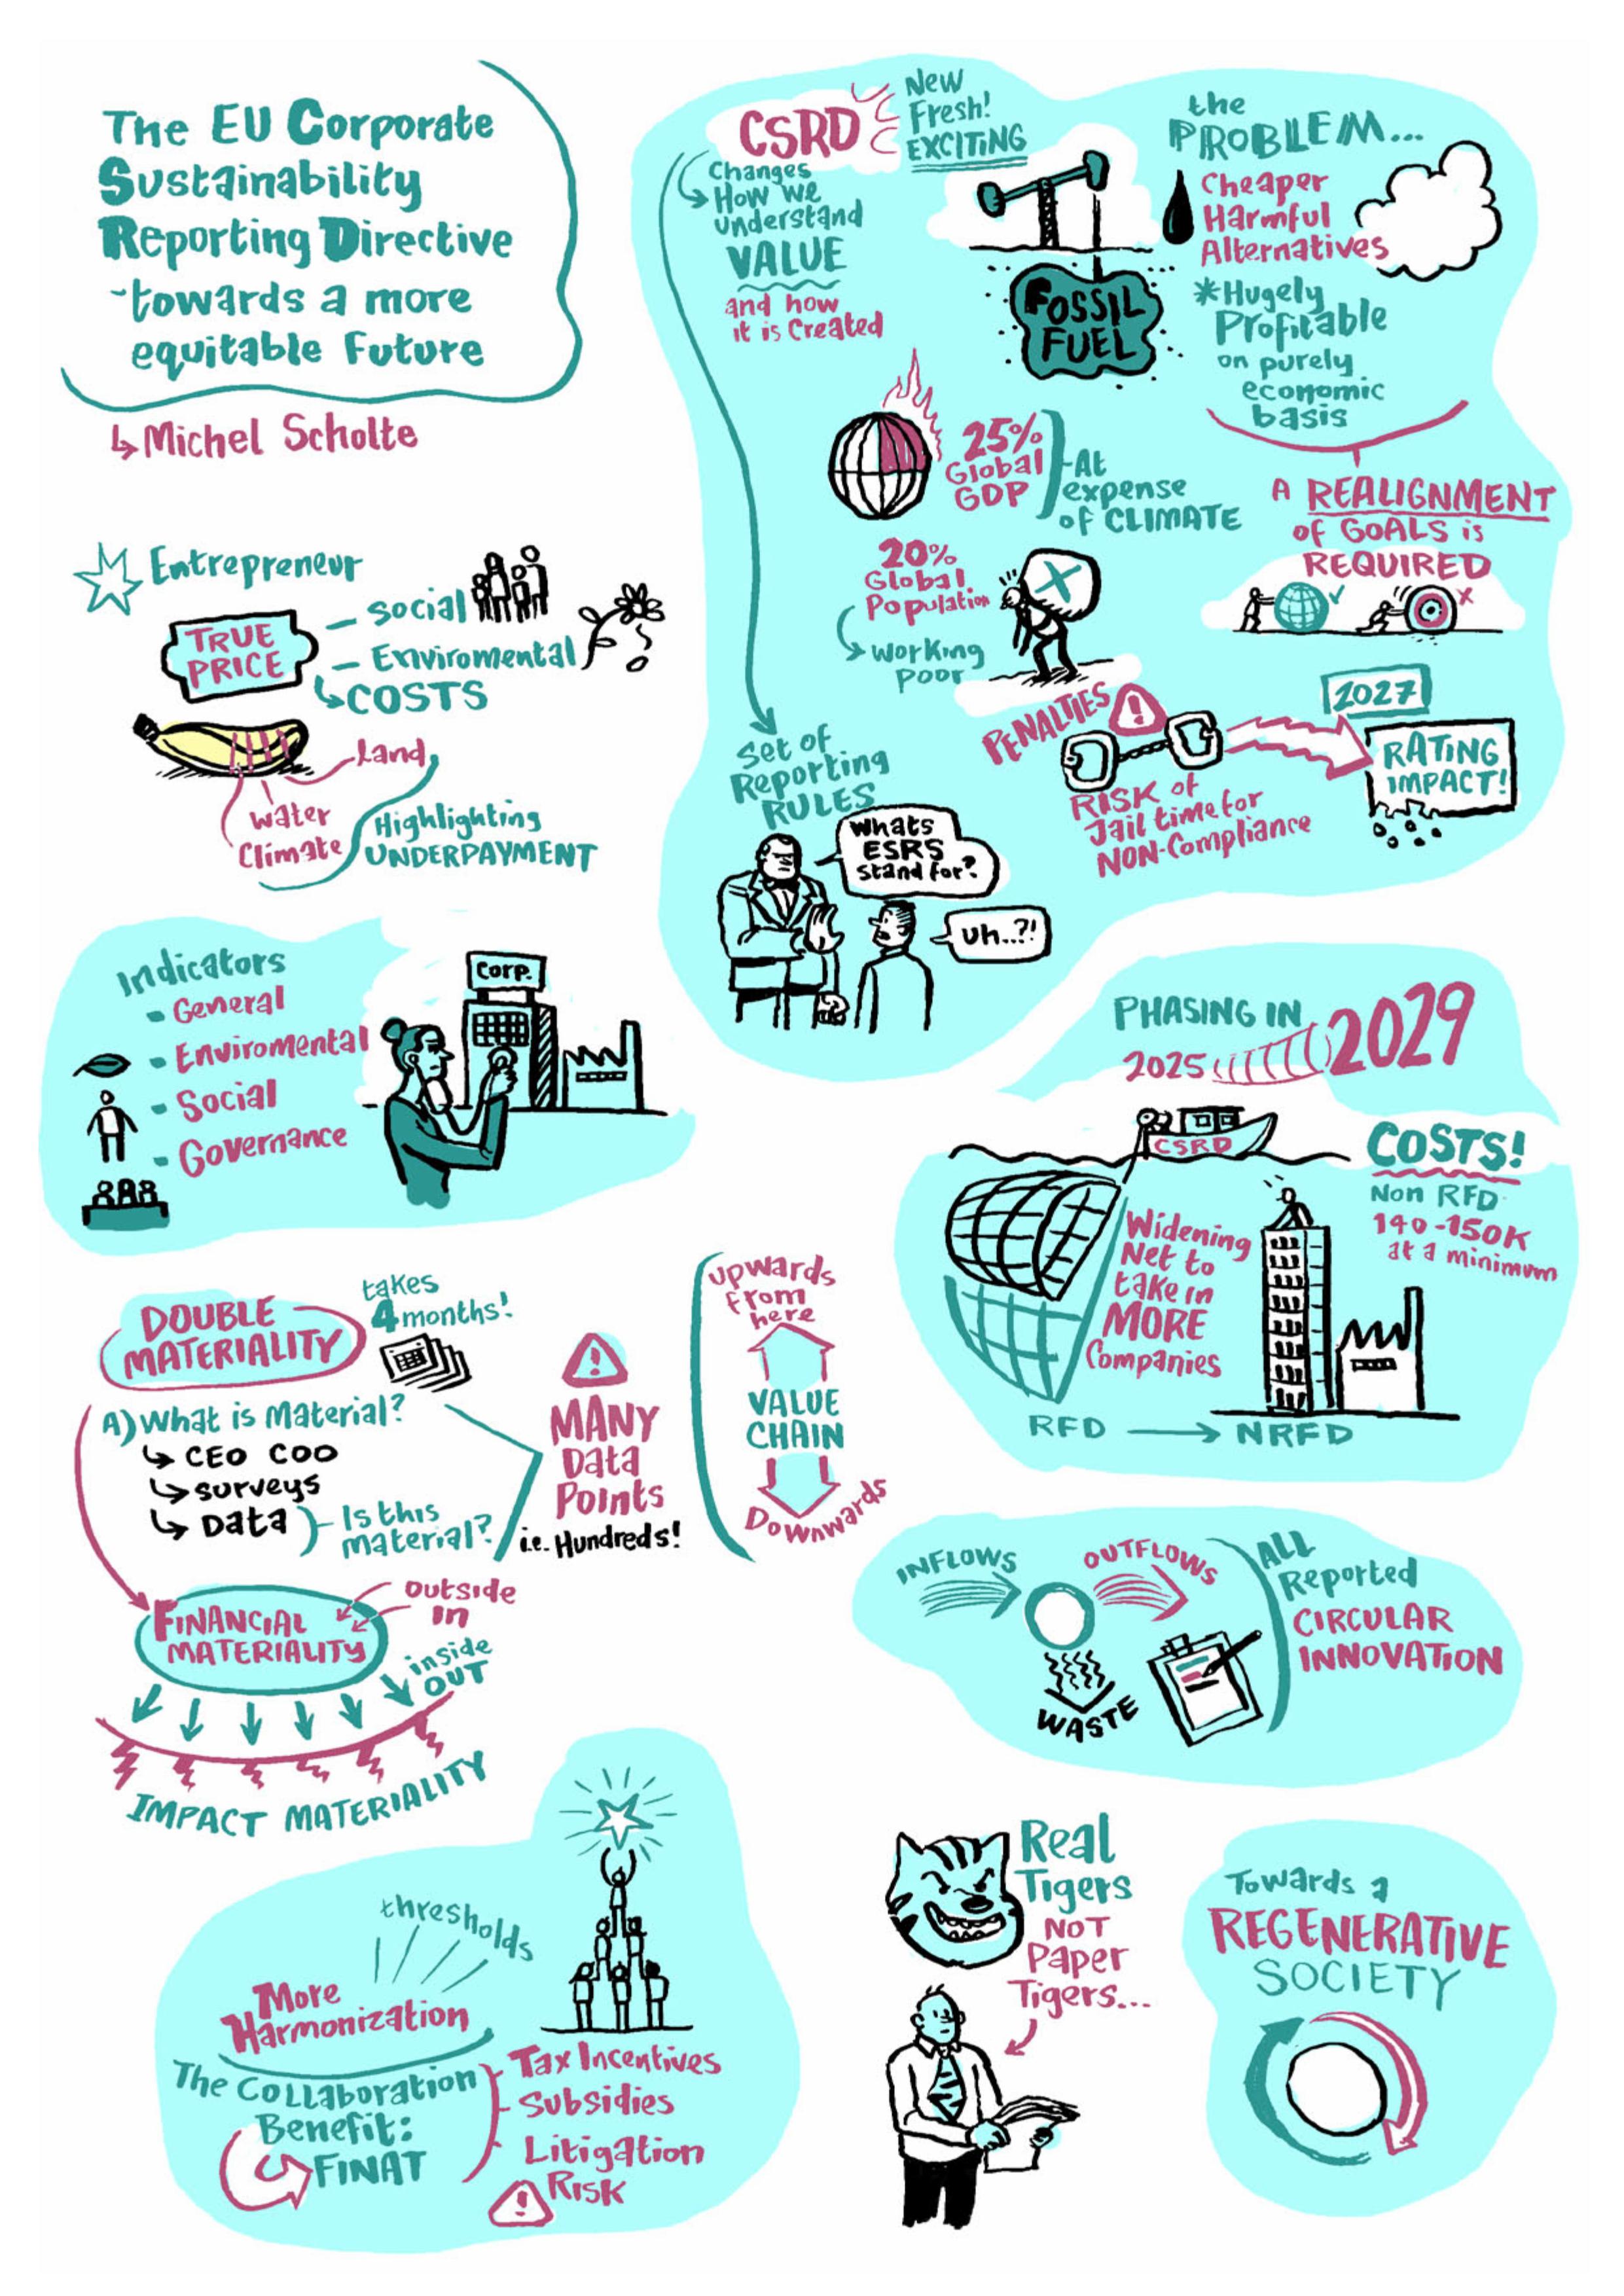 The EU Corporate
Sustainability
Reporting Directive
-towards a more
equitable Future
Michel Scholte
Entrepreneur
TRUE
PRICE
- Social
- Enviromental
COSTS
Land
Water
Climate
Highlighting
UNDERPAYMENT
CSRD
New
Fresh!
EXCITING
Changes
How we
understand
VALUE
and how
it is Created
FOSSIL
FUEL
the
PROBLEM...
Cheaper
Harmful
Alternatives
*Hugely
Profitable
on purely
economic
basis
25%
Global
GDP
At
expense
of CLIMATE
A REALIGNMENT
OF GOALS is
REQUIRED
20%
Global
Population
Working
POOR
PENALTIES
!
RISK of
Jail time for
NON-Compliance
2027
RATING
IMPACT!
Set of
Reporting
RULES
Whats
ESRS
Stand for?
Uh...?!
Indicators
- General
- Enviromental
- Social
- Governance
Corp.
PHASING IN
2025
2029
CSRD
COSTS!
Non RFD
140-150K
at a minimum
Widening
Net to
take in
MORE
Companies
RFD
NRFD
DOUBLE
MATERIALITY
takes
4 months!
A) What is Material?
CEO COO
Surveys
Data
Is this
material?
!
MANY
Data
Points
i.e. Hundreds!
Upwards
From
here
VALUE
CHAIN
Downwards
FINANCIAL
MATERIALITY
Outside
In
inside
OUT
IMPACT MATERIALITY
INFLOWS
OUTFLOWS
WASTE
ALL
Reported
CIRCULAR
INNOVATION
thresholds
More
Harmonization
The Collaboration
Benefit:
FINAT
Tax Incentives
Subsidies
Litigation
Risk
!
Real
Tigers
NOT
Paper
Tigers...
Towards a
REGENERATIVE
SOCIETY